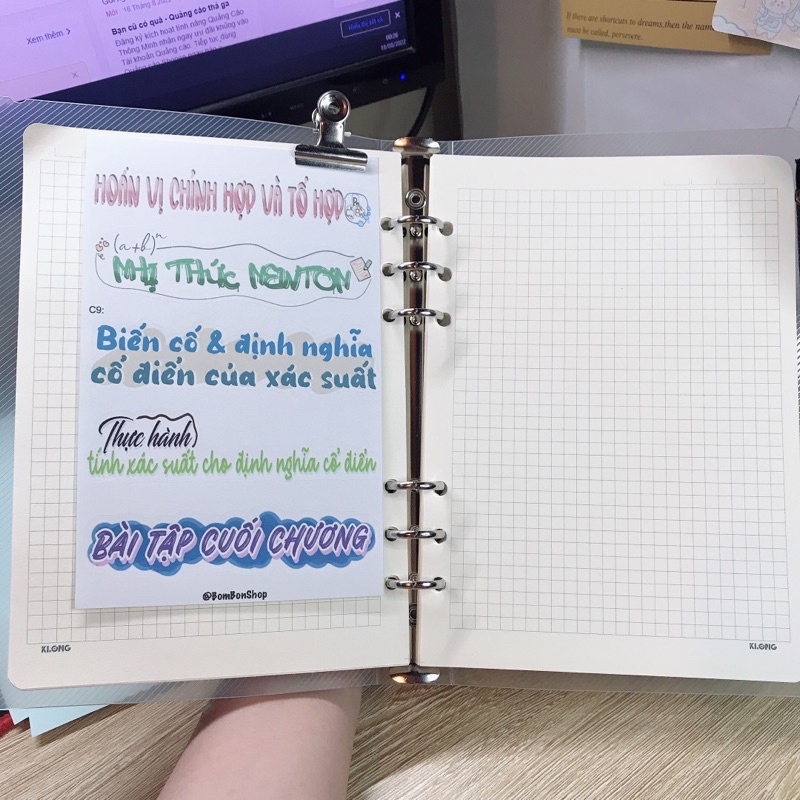 Xem thêm >
Mới - 16 Tháng 8
Bạn có quà - Quảng cáo thả ga
Đăng ký kích hoạt tính năng Quảng Cáo
Thông Minh nhận ngay ưu đãi khủng vào
Tài khoản Quảng cáo. Tiếp tục dùng
If there are shortcuts to dreams,then the name
must be called, persevere.
HOÁN VỊ CHỈNH HỢP VÀ TỔ HỢP
(a+b)ⁿ
NHỊ THỨC NEWTON
C9:
Biến cố & định nghĩa
cổ điển của xác suất
Thực hành
tính xác suất cho định nghĩa cổ điển
BÀI TẬP CUỐI CHƯƠNG
@BomBonShop
KLONG
KLONG